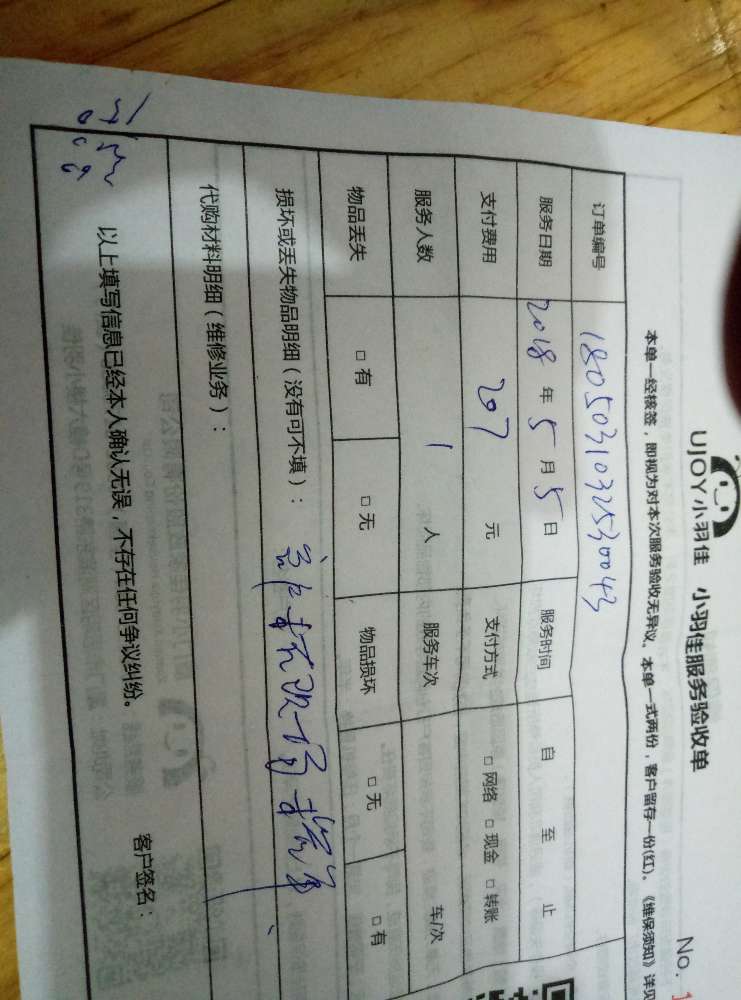 UJOY小羽佳 小羽佳服务验收单
No. 1
本单一经核签，即视为对本次服务验收无异议。本单一式两份，客户留存一份(红)。《维保须知》详见
订单编号 1805031032530043
服务日期 2018 年 5 月 5 日 服务时间 自 至 止
支付费用 207 元 支付方式 □ 网络 □ 现金 □ 转账
服务人数 1 人 服务车次 车/次
物品丢失 □ 有 □ 无 物品损坏 □ 无 □ 有
损坏或丢失物品明细（没有可不填）：
代购材料明细（维修业务）：
以上填写信息已经本人确认无误，不存在任何争议纠纷。
客户签名：